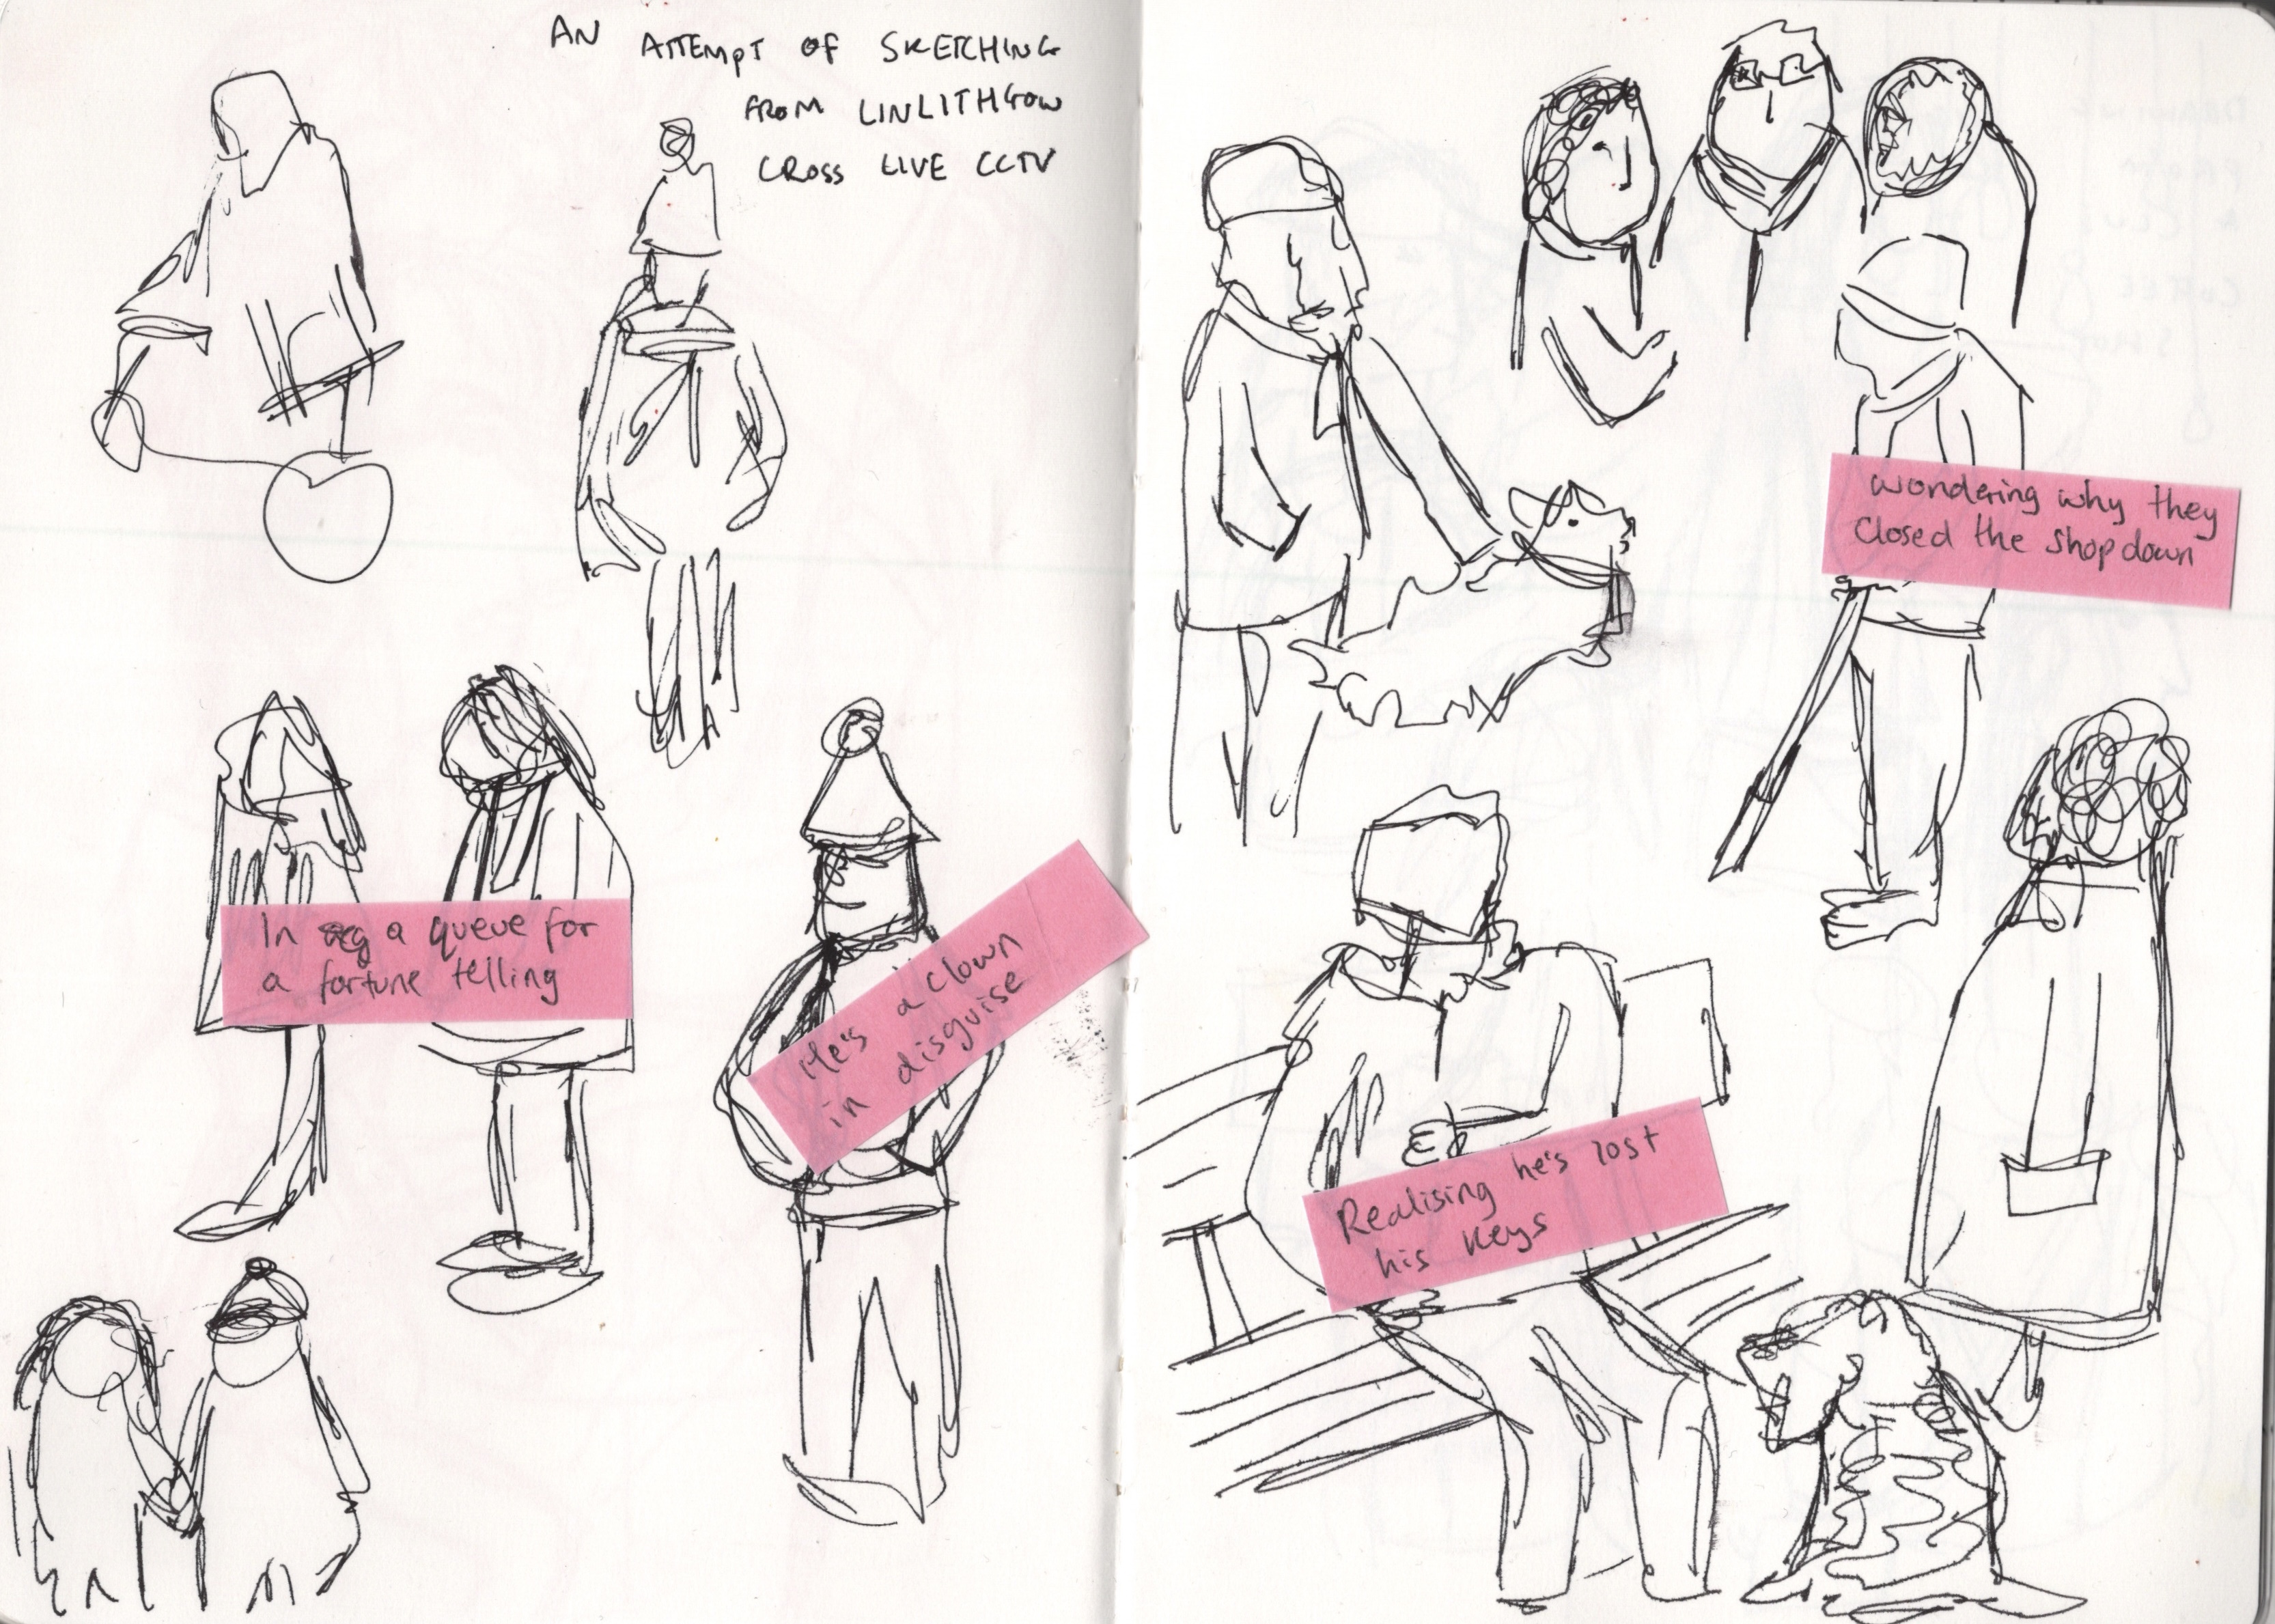 AN ATTEMPT OF SKETCHING
FROM LINLITHGOW
CROSS LIVE CCTV
In a queue for
a fortune telling
He's a clown
in disguise
wondering why they
Closed the shop down
Realising he's lost
his keys